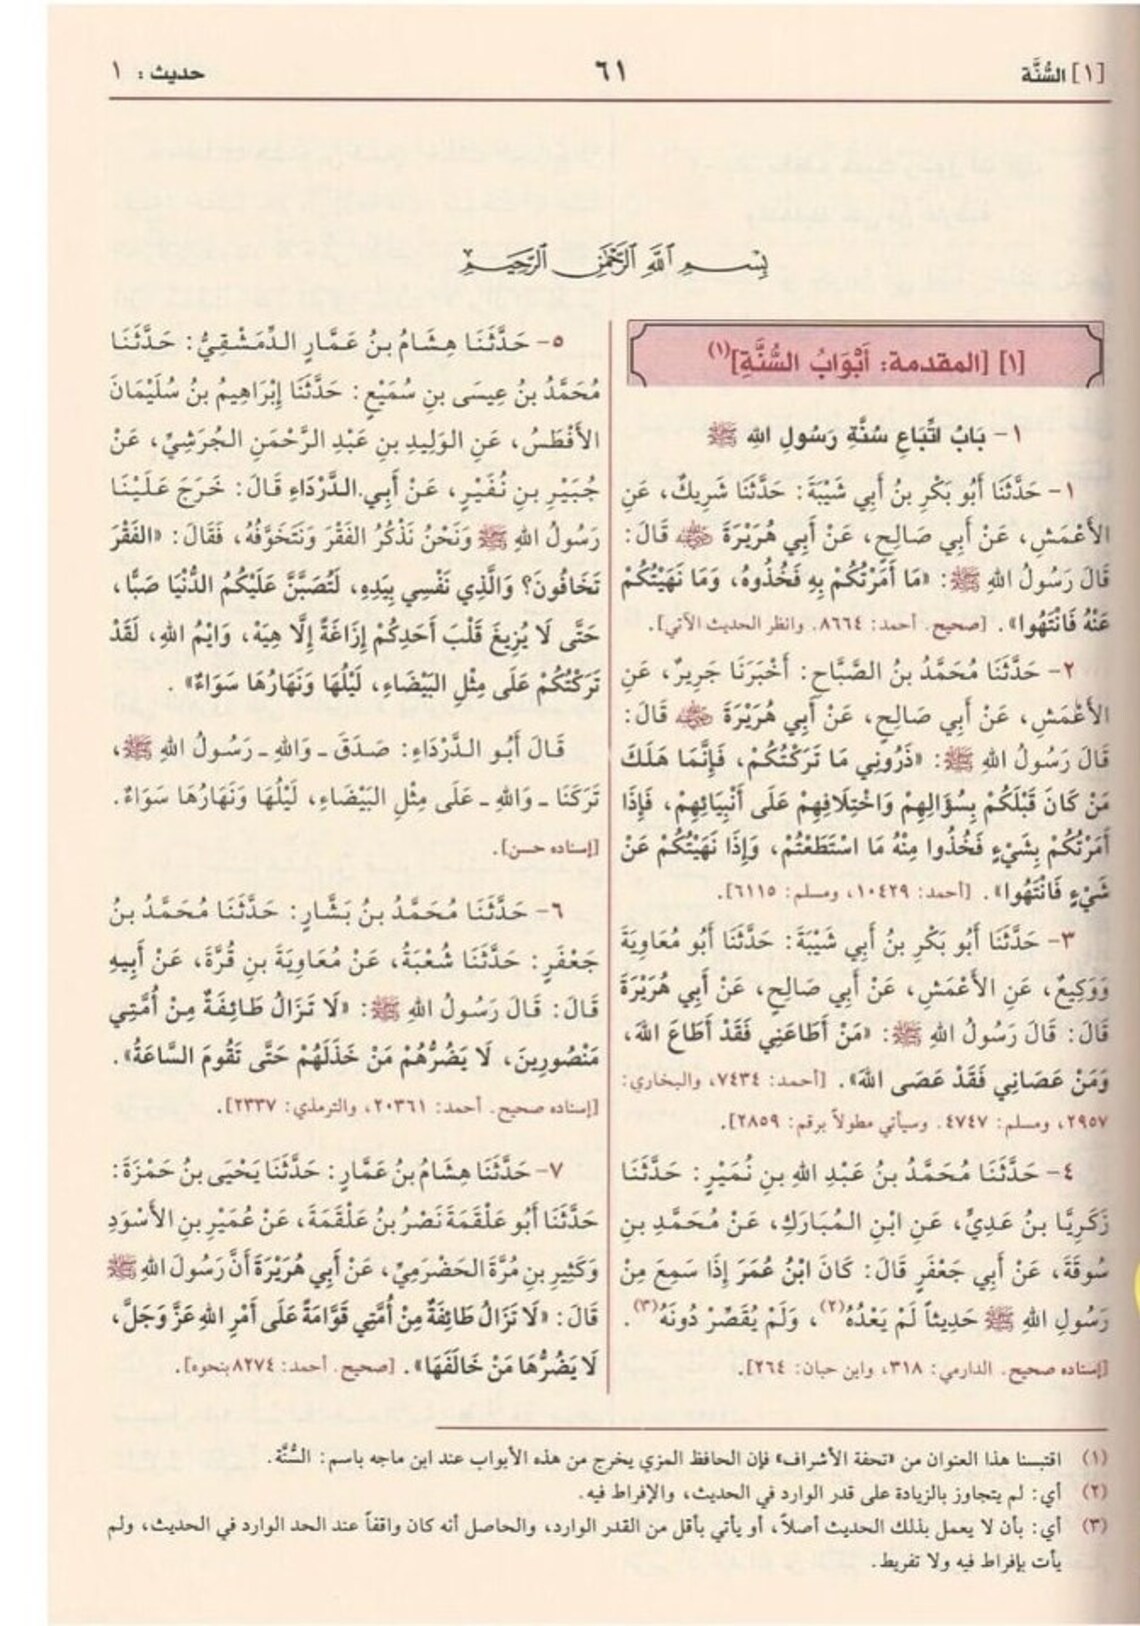 [١] السُّنَّة
٦١
حديث : ١
بِسْمِ اللَّهِ الرَّحْمَٰنِ الرَّحِيمِ
[١] [المقدمة: أَبْوَابُ السُّنَّةِ](١)
١- بَابُ اتِّبَاعِ سُنَّةِ رَسُولِ اللهِ ﷺ
١- حَدَّثَنَا أَبُو بَكْرِ بنُ أَبِي شَيْبَةَ: حَدَّثَنَا شَرِيكٌ، عَنِ
الأَعْمَشِ، عَنْ أَبِي صَالِحٍ، عَنْ أَبِي هُرَيْرَةَ ﷺ قَالَ:
قَالَ رَسُولُ اللهِ ﷺ: «مَا أَمَرْتُكُمْ بِهِ فَخُذُوهُ، وَمَا نَهَيْتُكُمْ
عَنْهُ فَانْتَهُوا». [صحيح. أحمد: ٨٦٦٤. وانظر الحديث الآتي].
٢- حَدَّثَنَا مُحَمَّدُ بنُ الصَّبَّاحِ: أَخْبَرَنَا جَرِيرٌ، عَنِ
الأَعْمَشِ، عَنْ أَبِي صَالِحٍ، عَنْ أَبِي هُرَيْرَةَ ﷺ قَالَ:
قَالَ رَسُولُ اللهِ ﷺ: «ذَرُونِي مَا تَرَكْتُكُمْ، فَإِنَّمَا هَلَكَ
مَنْ كَانَ قَبْلَكُمْ بِسُؤَالِهِمْ وَاخْتِلَافِهِمْ عَلَى أَنْبِيَائِهِمْ، فَإِذَا
أَمَرْتُكُمْ بِشَيْءٍ فَخُذُوا مِنْهُ مَا اسْتَطَعْتُمْ، وَإِذَا نَهَيْتُكُمْ عَنْ
شَيْءٍ فَانْتَهُوا». [أحمد: ١٠٤٢٩، ومسلم: ٦١١٥].
٣- حَدَّثَنَا أَبُو بَكْرِ بنُ أَبِي شَيْبَةَ: حَدَّثَنَا أَبُو مُعَاوِيَةَ
وَوَكِيعٌ، عَنِ الأَعْمَشِ، عَنْ أَبِي صَالِحٍ، عَنْ أَبِي هُرَيْرَةَ
قَالَ: قَالَ رَسُولُ اللهِ ﷺ: «مَنْ أَطَاعَنِي فَقَدْ أَطَاعَ اللهَ،
وَمَنْ عَصَانِي فَقَدْ عَصَى اللهَ». [أحمد: ٧٤٣٤، والبخاري:
٢٩٥٧، ومسلم: ٤٧٤٧. وسيأتي مطولاً برقم: ٢٨٥٩].
٤- حَدَّثَنَا مُحَمَّدُ بنُ عَبْدِ اللهِ بنِ نُمَيْرٍ: حَدَّثَنَا
زَكَرِيَّا بنُ عَدِيٍّ، عَنِ ابْنِ المُبَارَكِ، عَنْ مُحَمَّدِ بنِ
سُوقَةَ، عَنْ أَبِي جَعْفَرٍ قَالَ: كَانَ ابْنُ عُمَرَ إِذَا سَمِعَ مِنْ
رَسُولِ اللهِ ﷺ حَدِيثاً لَمْ يَعْدُهُ(٢)، وَلَمْ يُقَصِّرْ دُونَهُ(٣).
[إسناده صحيح. الدارمي: ٣١٨، وابن حبان: ٢٦٤].
٥- حَدَّثَنَا هِشَامُ بنُ عَمَّارٍ الدِّمَشْقِيُّ: حَدَّثَنَا
مُحَمَّدُ بنُ عِيسَى بنِ سُمَيْعٍ: حَدَّثَنَا إِبْرَاهِيمُ بنُ سُلَيْمَانَ
الأَفْطَسُ، عَنِ الوَلِيدِ بنِ عَبْدِ الرَّحْمَنِ الجُرَشِيِّ، عَنْ
جُبَيْرِ بنِ نُفَيْرٍ، عَنْ أَبِي الدَّرْدَاءِ قَالَ: خَرَجَ عَلَيْنَا
رَسُولُ اللهِ ﷺ وَنَحْنُ نَذْكُرُ الفَقْرَ وَنَتَخَوَّفُهُ، فَقَالَ: «الفَقْرَ
تَخَافُونَ؟ وَالَّذِي نَفْسِي بِيَدِهِ، لَتُصَبَّنَّ عَلَيْكُمُ الدُّنْيَا صَبًّا،
حَتَّى لَا يُزِيغَ قَلْبَ أَحَدِكُمْ إِزَاغَةً إِلَّا هِيَهْ، وَايْمُ اللهِ، لَقَدْ
تَرَكْتُكُمْ عَلَى مِثْلِ البَيْضَاءِ، لَيْلُهَا وَنَهَارُهَا سَوَاءٌ».
قَالَ أَبُو الدَّرْدَاءِ: صَدَقَ ـ وَاللهِ ـ رَسُولُ اللهِ ﷺ،
تَرَكَنَا ـ وَاللهِ ـ عَلَى مِثْلِ البَيْضَاءِ، لَيْلُهَا وَنَهَارُهَا سَوَاءٌ.
[إسناده حسن].
٦- حَدَّثَنَا مُحَمَّدُ بنُ بَشَّارٍ: حَدَّثَنَا مُحَمَّدُ بنُ
جَعْفَرٍ: حَدَّثَنَا شُعْبَةُ، عَنْ مُعَاوِيَةَ بنِ قُرَّةَ، عَنْ أَبِيهِ
قَالَ: قَالَ رَسُولُ اللهِ ﷺ: «لَا تَزَالُ طَائِفَةٌ مِنْ أُمَّتِي
مَنْصُورِينَ، لَا يَضُرُّهُمْ مَنْ خَذَلَهُمْ حَتَّى تَقُومَ السَّاعَةُ».
[إسناده صحيح. أحمد: ٢٠٣٦١، والترمذي: ٢٣٣٧].
٧- حَدَّثَنَا هِشَامُ بنُ عَمَّارٍ: حَدَّثَنَا يَحْيَى بنُ حَمْزَةَ:
حَدَّثَنَا أَبُو عَلْقَمَةَ نَصْرُ بنُ عَلْقَمَةَ، عَنْ عُمَيْرِ بنِ الأَسْوَدِ
وَكَثِيرِ بنِ مُرَّةَ الحَضْرَمِيِّ، عَنْ أَبِي هُرَيْرَةَ أَنَّ رَسُولَ اللهِ ﷺ
قَالَ: «لَا تَزَالُ طَائِفَةٌ مِنْ أُمَّتِي قَوَّامَةً عَلَى أَمْرِ اللهِ عَزَّ وَجَلَّ،
لَا يَضُرُّهَا مَنْ خَالَفَهَا». [صحيح. أحمد: ٨٢٧٤ بنحوه].
(١) اقتبسنا هذا العنوان من «تحفة الأشراف» فإن الحافظ المزي يخرج من هذه الأبواب عند ابن ماجه باسم: السُّنَّة.
(٢) أي: لم يتجاوز بالزيادة على قدر الوارد في الحديث، والإفراط فيه.
(٣) أي: بأن لا يعمل بذلك الحديث أصلاً، أو يأتي بأقل من القدر الوارد، والحاصل أنه كان واقفاً عند الحد الوارد في الحديث، ولم
يأت بإفراط فيه ولا تفريط.